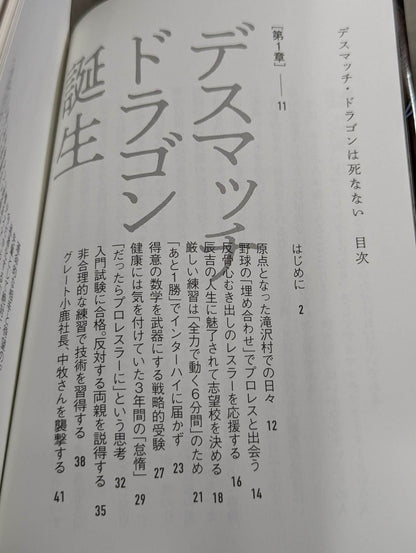 デスマッチ・ドラゴンは死なない　目次
はじめに 2
[第1章]――11
デスマッチ
ドラゴン
誕生
原点となった滝沢村での日々 12
野球の「埋め合わせ」でプロレスと出会う 14
反骨心むき出しのレスラーを応援する 16
辰吉の人生に魅了されて志望校を決める 18
厳しい練習は「全力で動く6分間」のため 21
「あと1勝」でインターハイに届かず 23
得意の数学を武器にする戦略的受験 27
健康には気を付けていた3年間の「怠惰」 29
「だったらプロレスラーに」という思考 32
入門試験に合格。反対する両親を説得する 35
非合理的な練習で技術を習得する 38
グレート小鹿社長、中牧さんを襲撃する 41